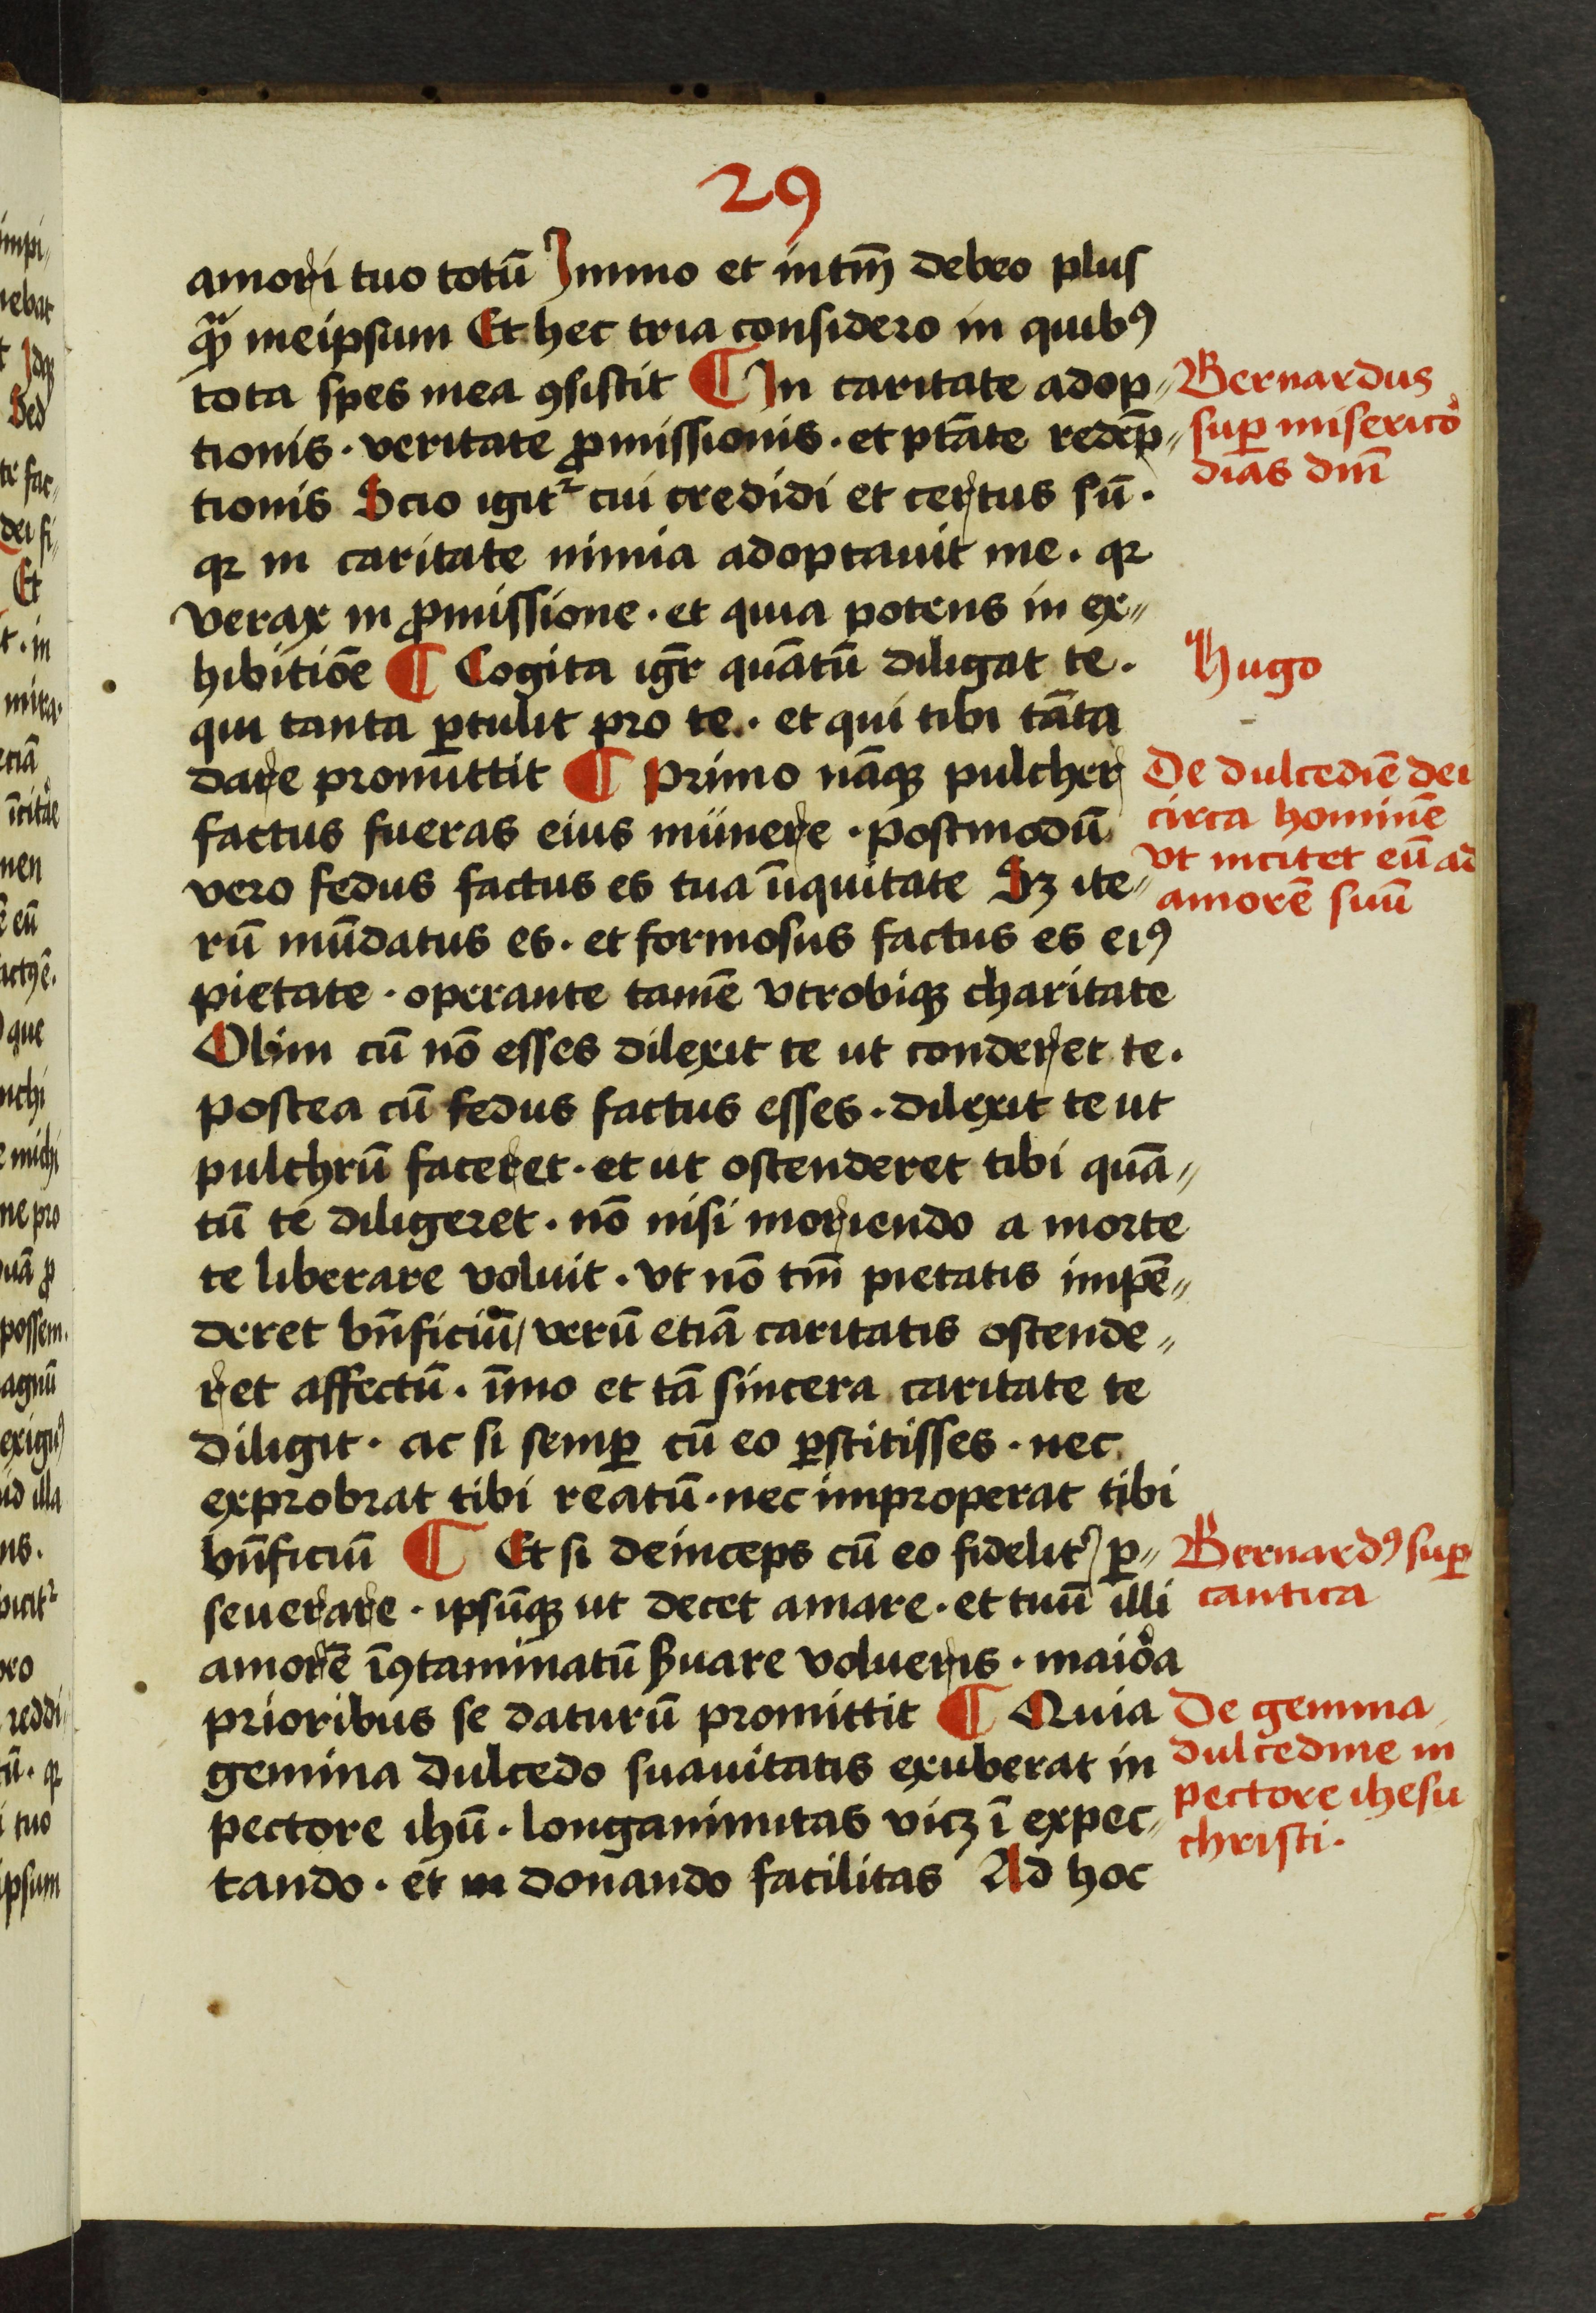 29
amori tuo totū Immo et intm̄ debeo plus
qm̄ meipsum Et hec tria considero in quibꝰ
tota spes mea ꝯsistit ¶ In caritate adop⸗
tionis · veritate ꝓmissionis · et ptāte redēp⸗
tionis Scio igitᷣ cui credidi et certus sū ·
qꝛ in caritate nimia adoptauit me · qꝛ
verax in ꝓmissione · et quia potens in ex⸗
hibitiōe ¶ Cogita igr̄ quātū diligat te ·
qui tanta ꝑtulit pro te · et qui tibi tāta
dare promittit ¶ Primo nāqꝫ pulcher
factus fueras eius munere · postmodū
vero fedus factus es tua īiquitate Sꝫ ite⸗
rū mūdatus es · et formosus factus es eiꝰ
pietate · operante tamē vtrobiqꝫ charitate
Olim cū nō esses dilexit te ut conderet te ·
postea cū fedus factus esses · dilexit te ut
pulchrū faceret · et ut ostenderet tibi quā⸗
tū te diligeret · nō nisi moriendo a morte
te liberare voluit · vt nō tm̄ pietatis impē⸗
deret bn̄ficiū / verū etiā caritatis ostende⸗
ret affectū · īmo et tā sincera caritate te
diligit · ac si semꝑ cū eo ꝑstitisses · nec
exprobrat tibi reatū · nec improperat tibi
bn̄ficiū ¶ Et si deinceps cū eo fidelit᷒ ꝑ⸗
seuerare · ipsūqꝫ ut decet amare · et tuū illi
amorē īꝯtaminatū ẜuare volueris · maiōa
prioribus se daturū promittit ¶ Quia
gemina dulcedo suauitatis exuberat in
pectore ihū · longanimitas vicꝫ ī expec⸗
tando · et in donando facilitas Ad hoc
Bernardus
suꝑ misericō
dias dnī
Hugo
De dulcediē dei
circa hominē
vt incitet eū ad
amorē suū
Bernardꝰ suꝑ
cantica
De gemina
dulcedine in
pectore ihesu
christi ·